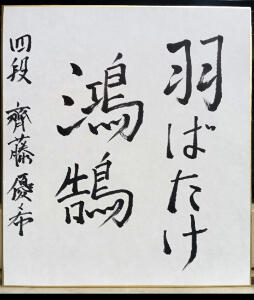 羽ばたけ
鴻鵠
四段 齊藤優希